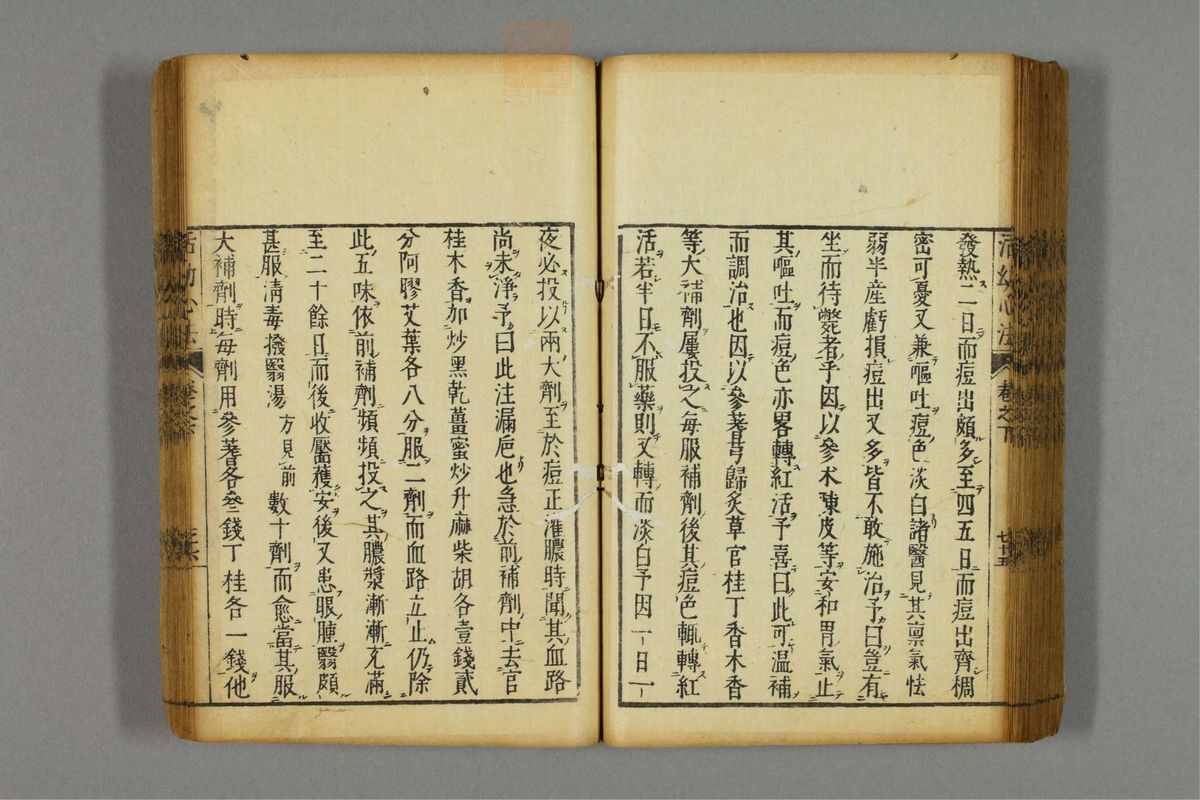 活幼心法 卷之下 七十五
發熱二日而痘出頗多至四五日而痘出齊稠
密可憂又兼嘔吐痘色淡白諸醫見其禀氣怯
弱半産虧損痘出又多皆不敢施治予曰豈有
坐而待斃者乎因以參术陳皮等安和胃氣止
其嘔吐而痘色亦畧轉紅活予喜曰此可温補
而調治也因以參蓍芎歸炙草官桂丁香木香
等大補劑屢投之每服補劑後其痘色輒轉紅
活若半日不服藥則又轉而淡白予因一日一
夜必投以兩大劑至於痘正灌膿時聞其血路
尚未淨予曰此注漏巵也急於前補劑中去官
桂木香加炒黑乾薑蜜炒升麻柴胡各壹錢貳
分阿膠艾葉各八分服二劑而血路立止仍除
此五味依前補劑頻頻投之其膿漿漸漸充滿
至二十餘日而後收靨獲安後又患眼腫翳頗
甚服淸毒撥翳湯方見前數十劑而愈當其服
大補劑時每劑用參蓍各叄錢丁桂各一錢他
活幼心法 卷之下